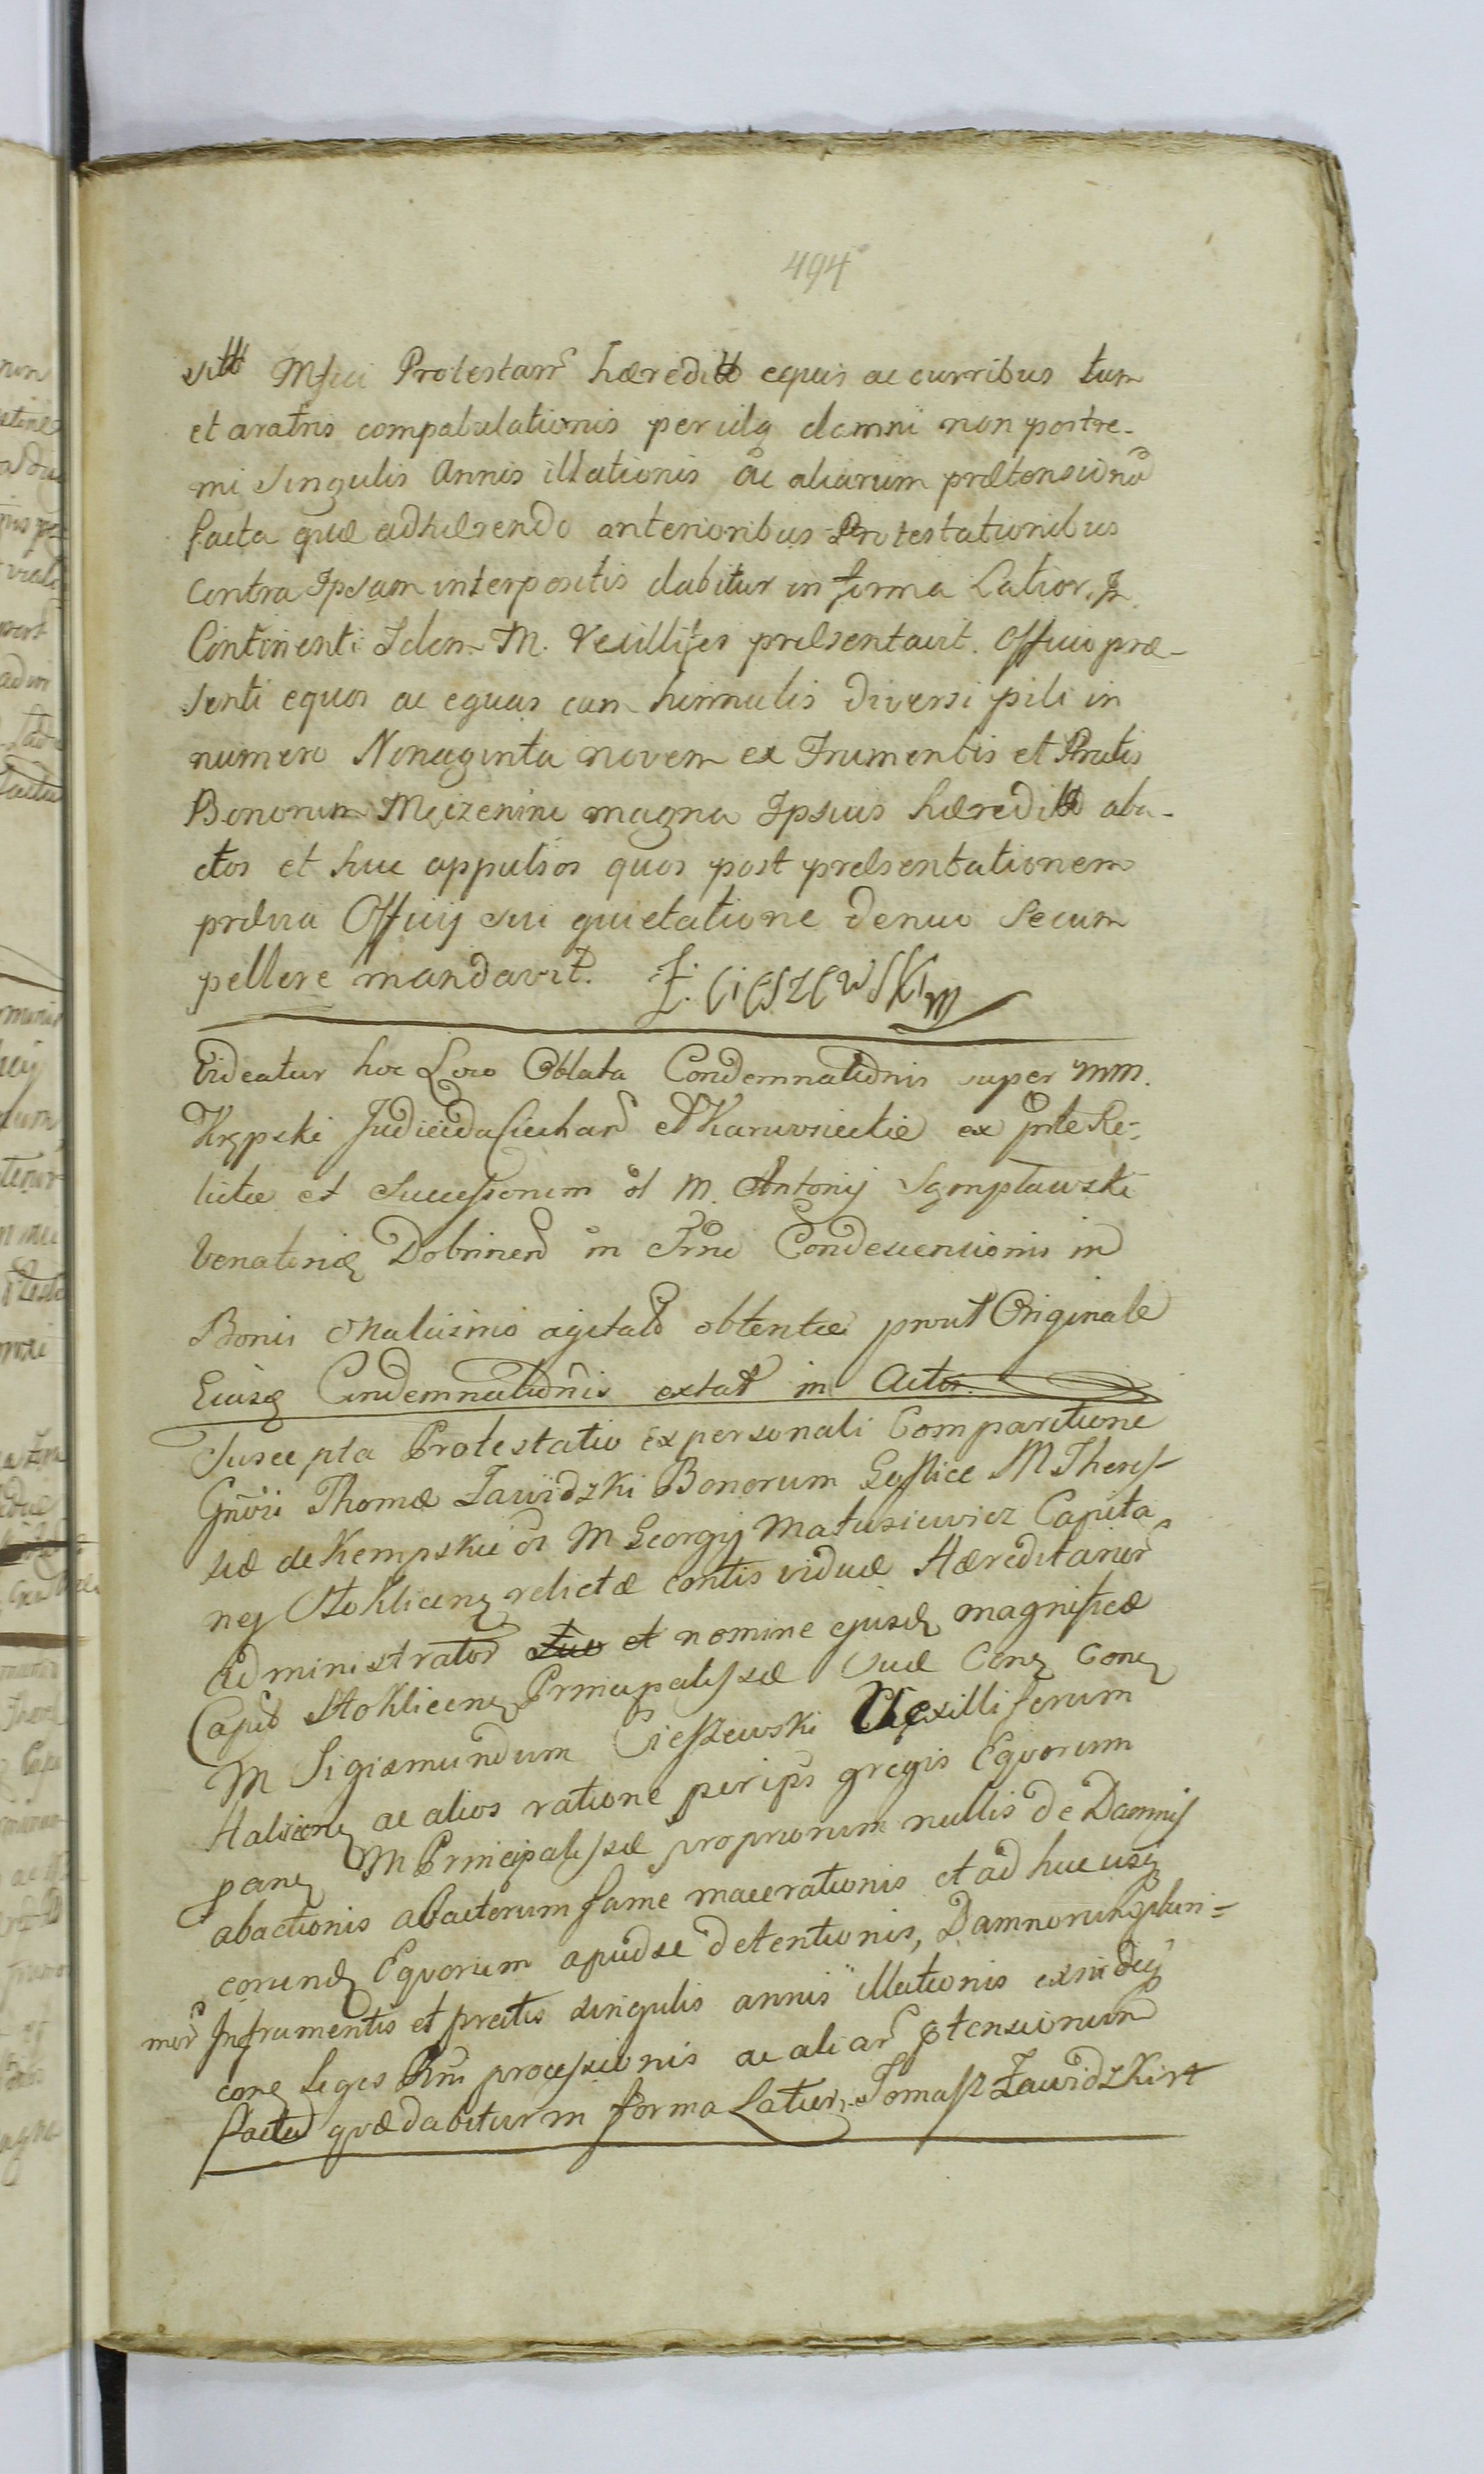 494
Mfici Protestanr̃ hæreditt equis ac curribus tum
et aratris compabulationis peridq damni non postre-
mi singulis Annis illationis ac aliarum prætensionũ
facta quæ adhærendo anterioribus Protestationibus
contra Ipsam interpositis dabitur in forma Latior, In
Continenti Idem M. Vexillifer præsentavit. Officio præ-
senti equos ac equas cum hinnulis diversi pili in
numero Nonaginta novem ex Frumentis et Pratis
Bonorum magna Ipsius hæreditt aba-
ctos et huc appulsos quos post præsentationem
prævia Officij sui quietatione denuo secum
pellere mandavit. Z. Cieszewski m
Videatur hoc Loco Oblata Condemnationis super mm.
Krępski ex prte Re-
lictæ et Successorum ol M. Antonij Sgmpławski
Venatoris Dobrinen in Frno Condescensionis in
Bonis agitato obtentæ prout Originale
Eiusq Condemnationis extat in Actis.
Suscepta Protestatio ex personali Comparitione
Gñori Thomæ Zawidzki Bonorum M Theres-
siæ de Kempskie ol M Georgij Matusiewicz Capita
nej Stokliceng relictæ contis viduæ Hæreditarior̃
administrator suo et nomine ejusd magnificæ
Capit Stokliceng Principalissæ suæ Conq Conq
M Sigismundum Cieszewski Vexilliferum
ac alios ratione perips gregis Equorum
M Principalissæ propriorum nullis de Damnis
abactionis abactorum fame macerationis et ad huc usq
eorundq Equorum apud se detentionis, Damnorumq pluri=
mor̃ In frumentis et pratis singulis annis illationis exindeq
conq leges Rni processionis ac aliar̃ ptensionum
facta quæ dabitur in forma Latiori. Tomasz Zawidzki